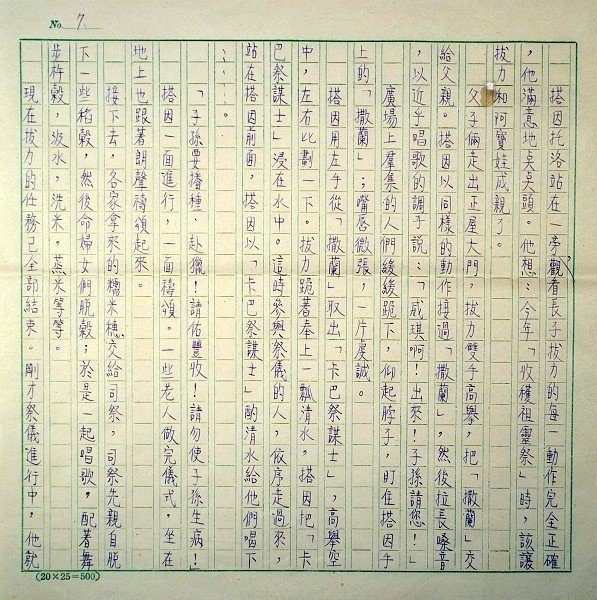 No. 7
塔因托洛站在一旁觀看長子拔力的每一動作完全正確
，他滿意地點點頭。他想：今年「收穫祖靈祭」時，該讓
拔力和阿寶娃成親了。
父子倆走出正屋大門，拔力雙手高舉，把「撒蘭」交
給父親。塔因以同樣的動作接過「撒蘭」，然後拉長嗓音
，以近乎唱歌的調子說：「威琪啊！出來！子孫請您！」
廣場上羣集的人們緩緩跪下，仰起脖子，盯住塔因手
上的「撒蘭」；嘴唇微張，一片虔誠。
塔因用左手從「撒蘭」取出「卡巴祭謀士」，高舉空
中，左右比劃一下。拔力跪著奉上一瓢清水，塔因把「卡
巴祭謀士」浸在水中。這時參與祭儀的人，依序走過來，
站在塔因前面，塔因以「卡巴祭謀士」酌清水給他們喝下
……。
「子孫要播種、赴獵！請佑豐收！請勿使子孫生病！」
塔因一面進行，一面禱頌。一些老人做完儀式，坐在
地上也跟著朗聲禱頌起來。
接下去，各家拿來的糯米穗交給司祭，司祭先親自脫
下一些稻穀，然後命婦女們脫穀；於是一起唱歌，配着舞
步杵穀，汲水，洗米，蒸米等等。
現在拔力的任務已全部結束。剛才祭儀進行中，他就
(20×25=500)